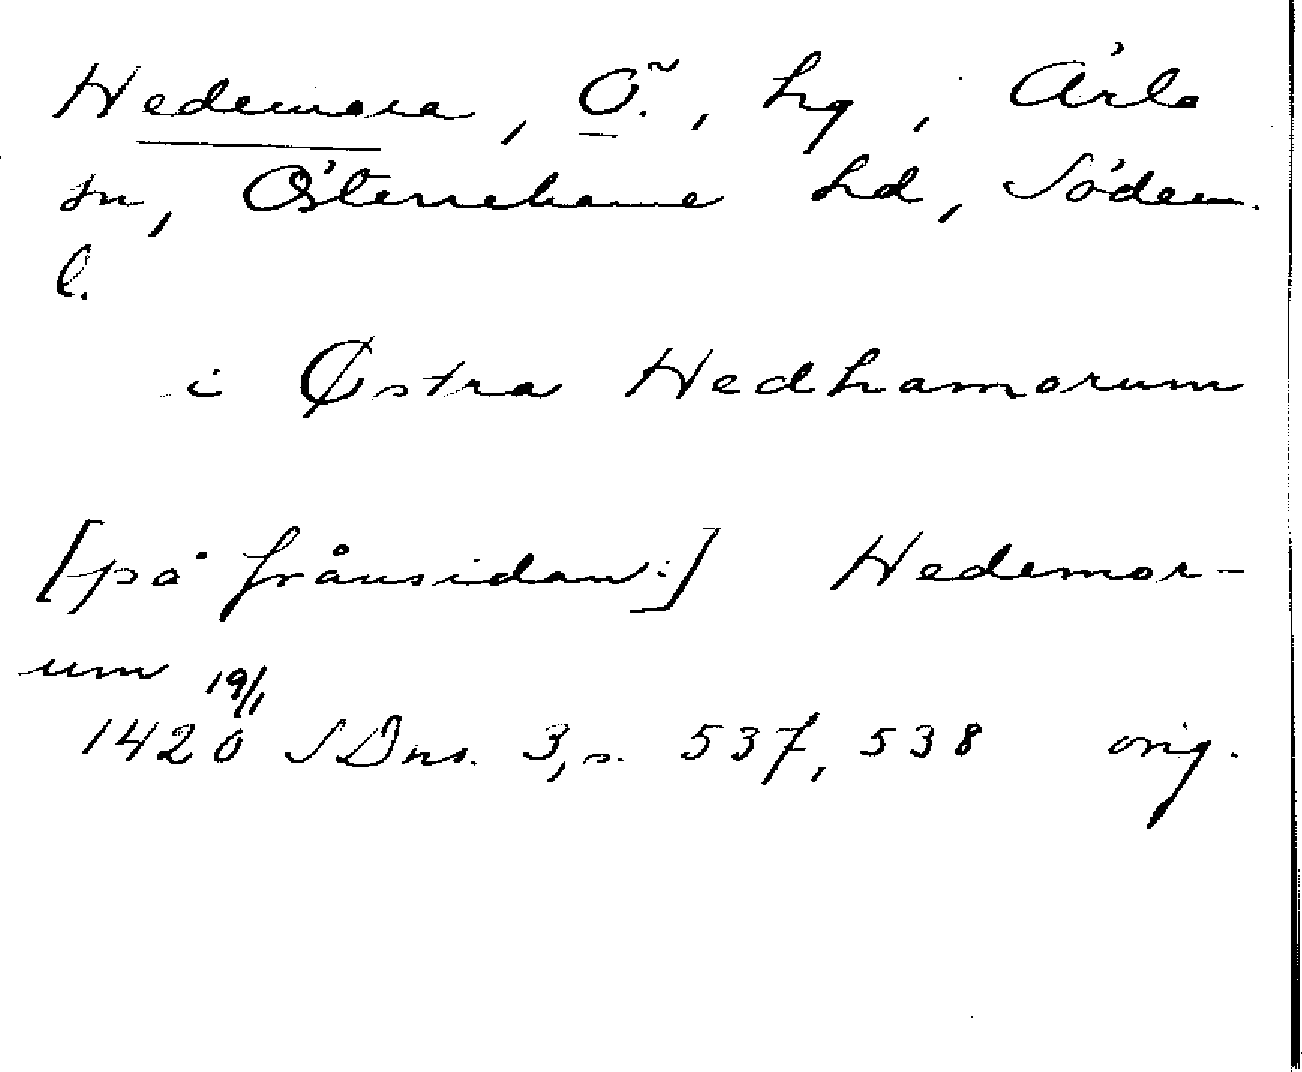 Hedemora, Ö., hg, Ärla
sn, Österrekarne hd, Söderm.
l.
i Østra Hedhamorum
[på frånsidan:] Hedemor-
um
19/1
1420 SDns. 3, s. 537, 538 orig.